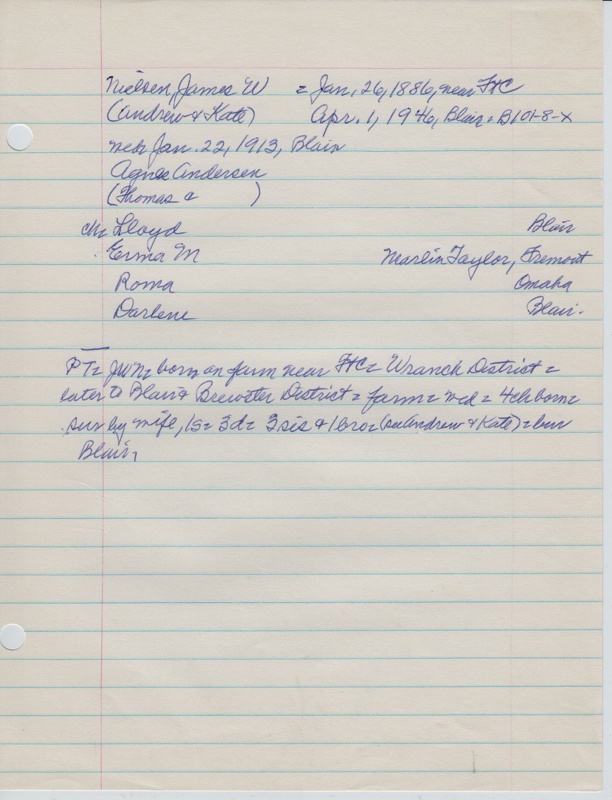 Nielsen, James W = Jan, 26, 1886, near FtC
(Andrew & Kate) Apr. 1, 1946, Blair = B101-8-X
wed Jan. 22, 1913, Blair
Agnes Andersen
(Thomas & )
ch= Lloyd Blair
Erma M Marlin Taylor, Fremont
Roma Omaha
Darlene Blair.
PT= JWN= born on farm near FtC= Wranch District =
later to Blair & Brewster District = farm = wed = 4ch born=
surv by wife, 1s= 3d= 3 sis & 1 bro= (see Andrew & Kate) = bur
Blair,